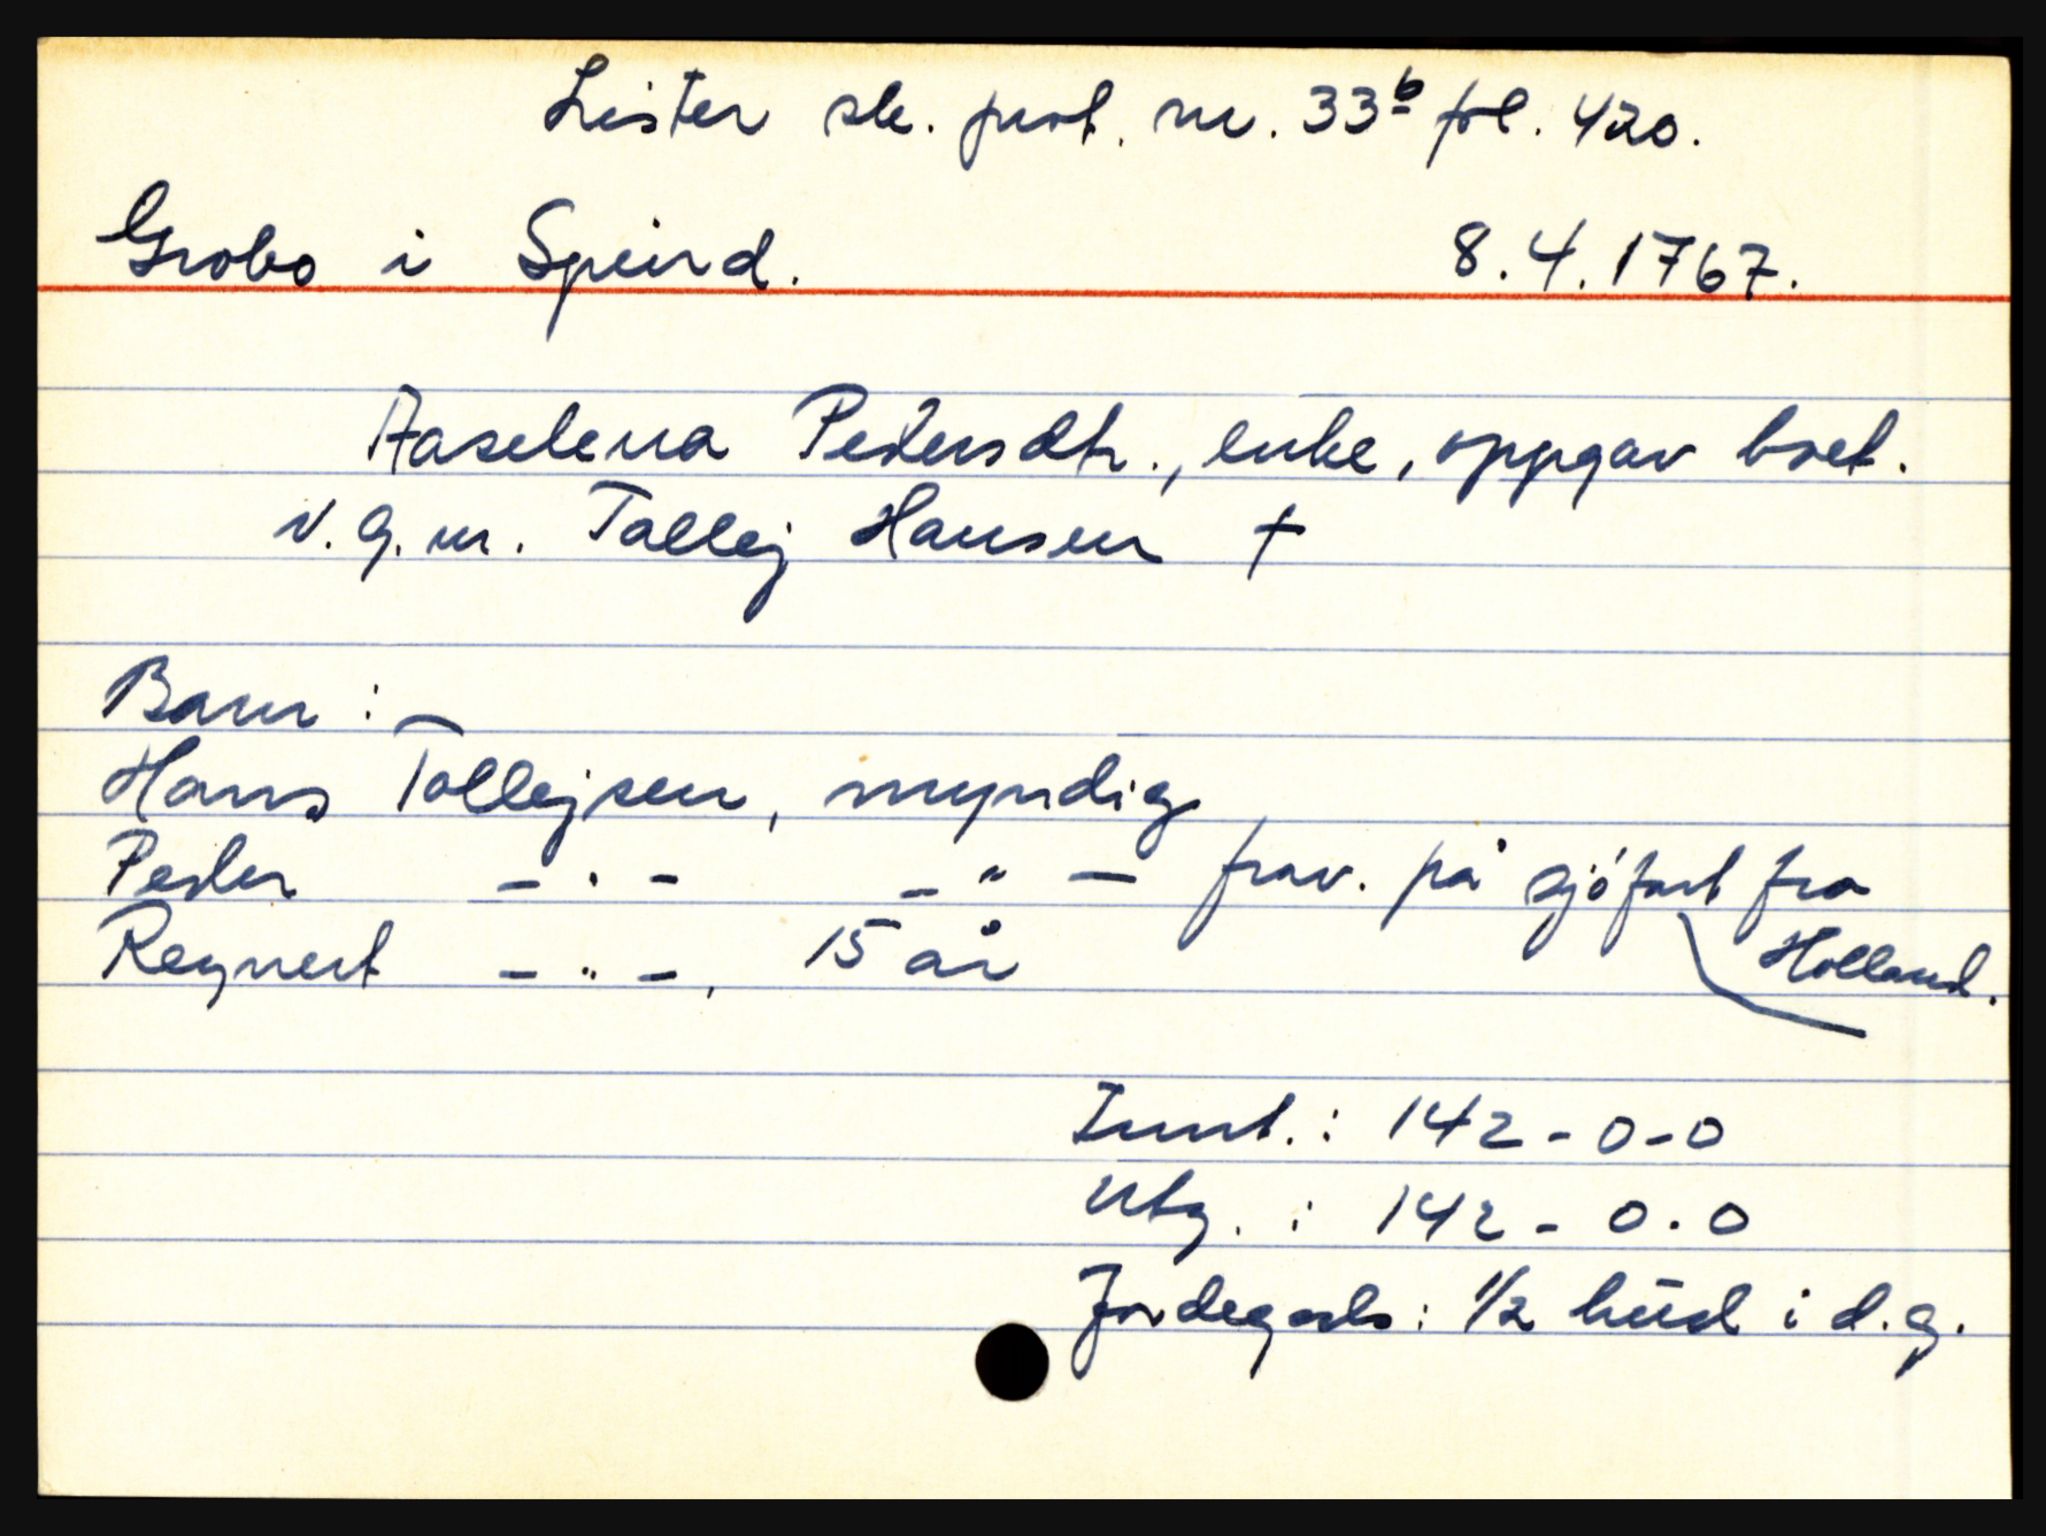 Lister sk. prot. nr. 33b fol. 420.
Grobo i Speird. 8.4.1767.
Aaselena Pedersdtr., enke, oppgav boet.
v.g.m. Tallej Hansen †
Barn:
Hans Tollejsen, myndig
Peder - " - - " - frav. på sjöfart fra Holland.
Reynert - " -, 15 år
Innt.: 142-0-0
Utg.: 142-0-0
Jordegods: 1/2 hud i d.g.